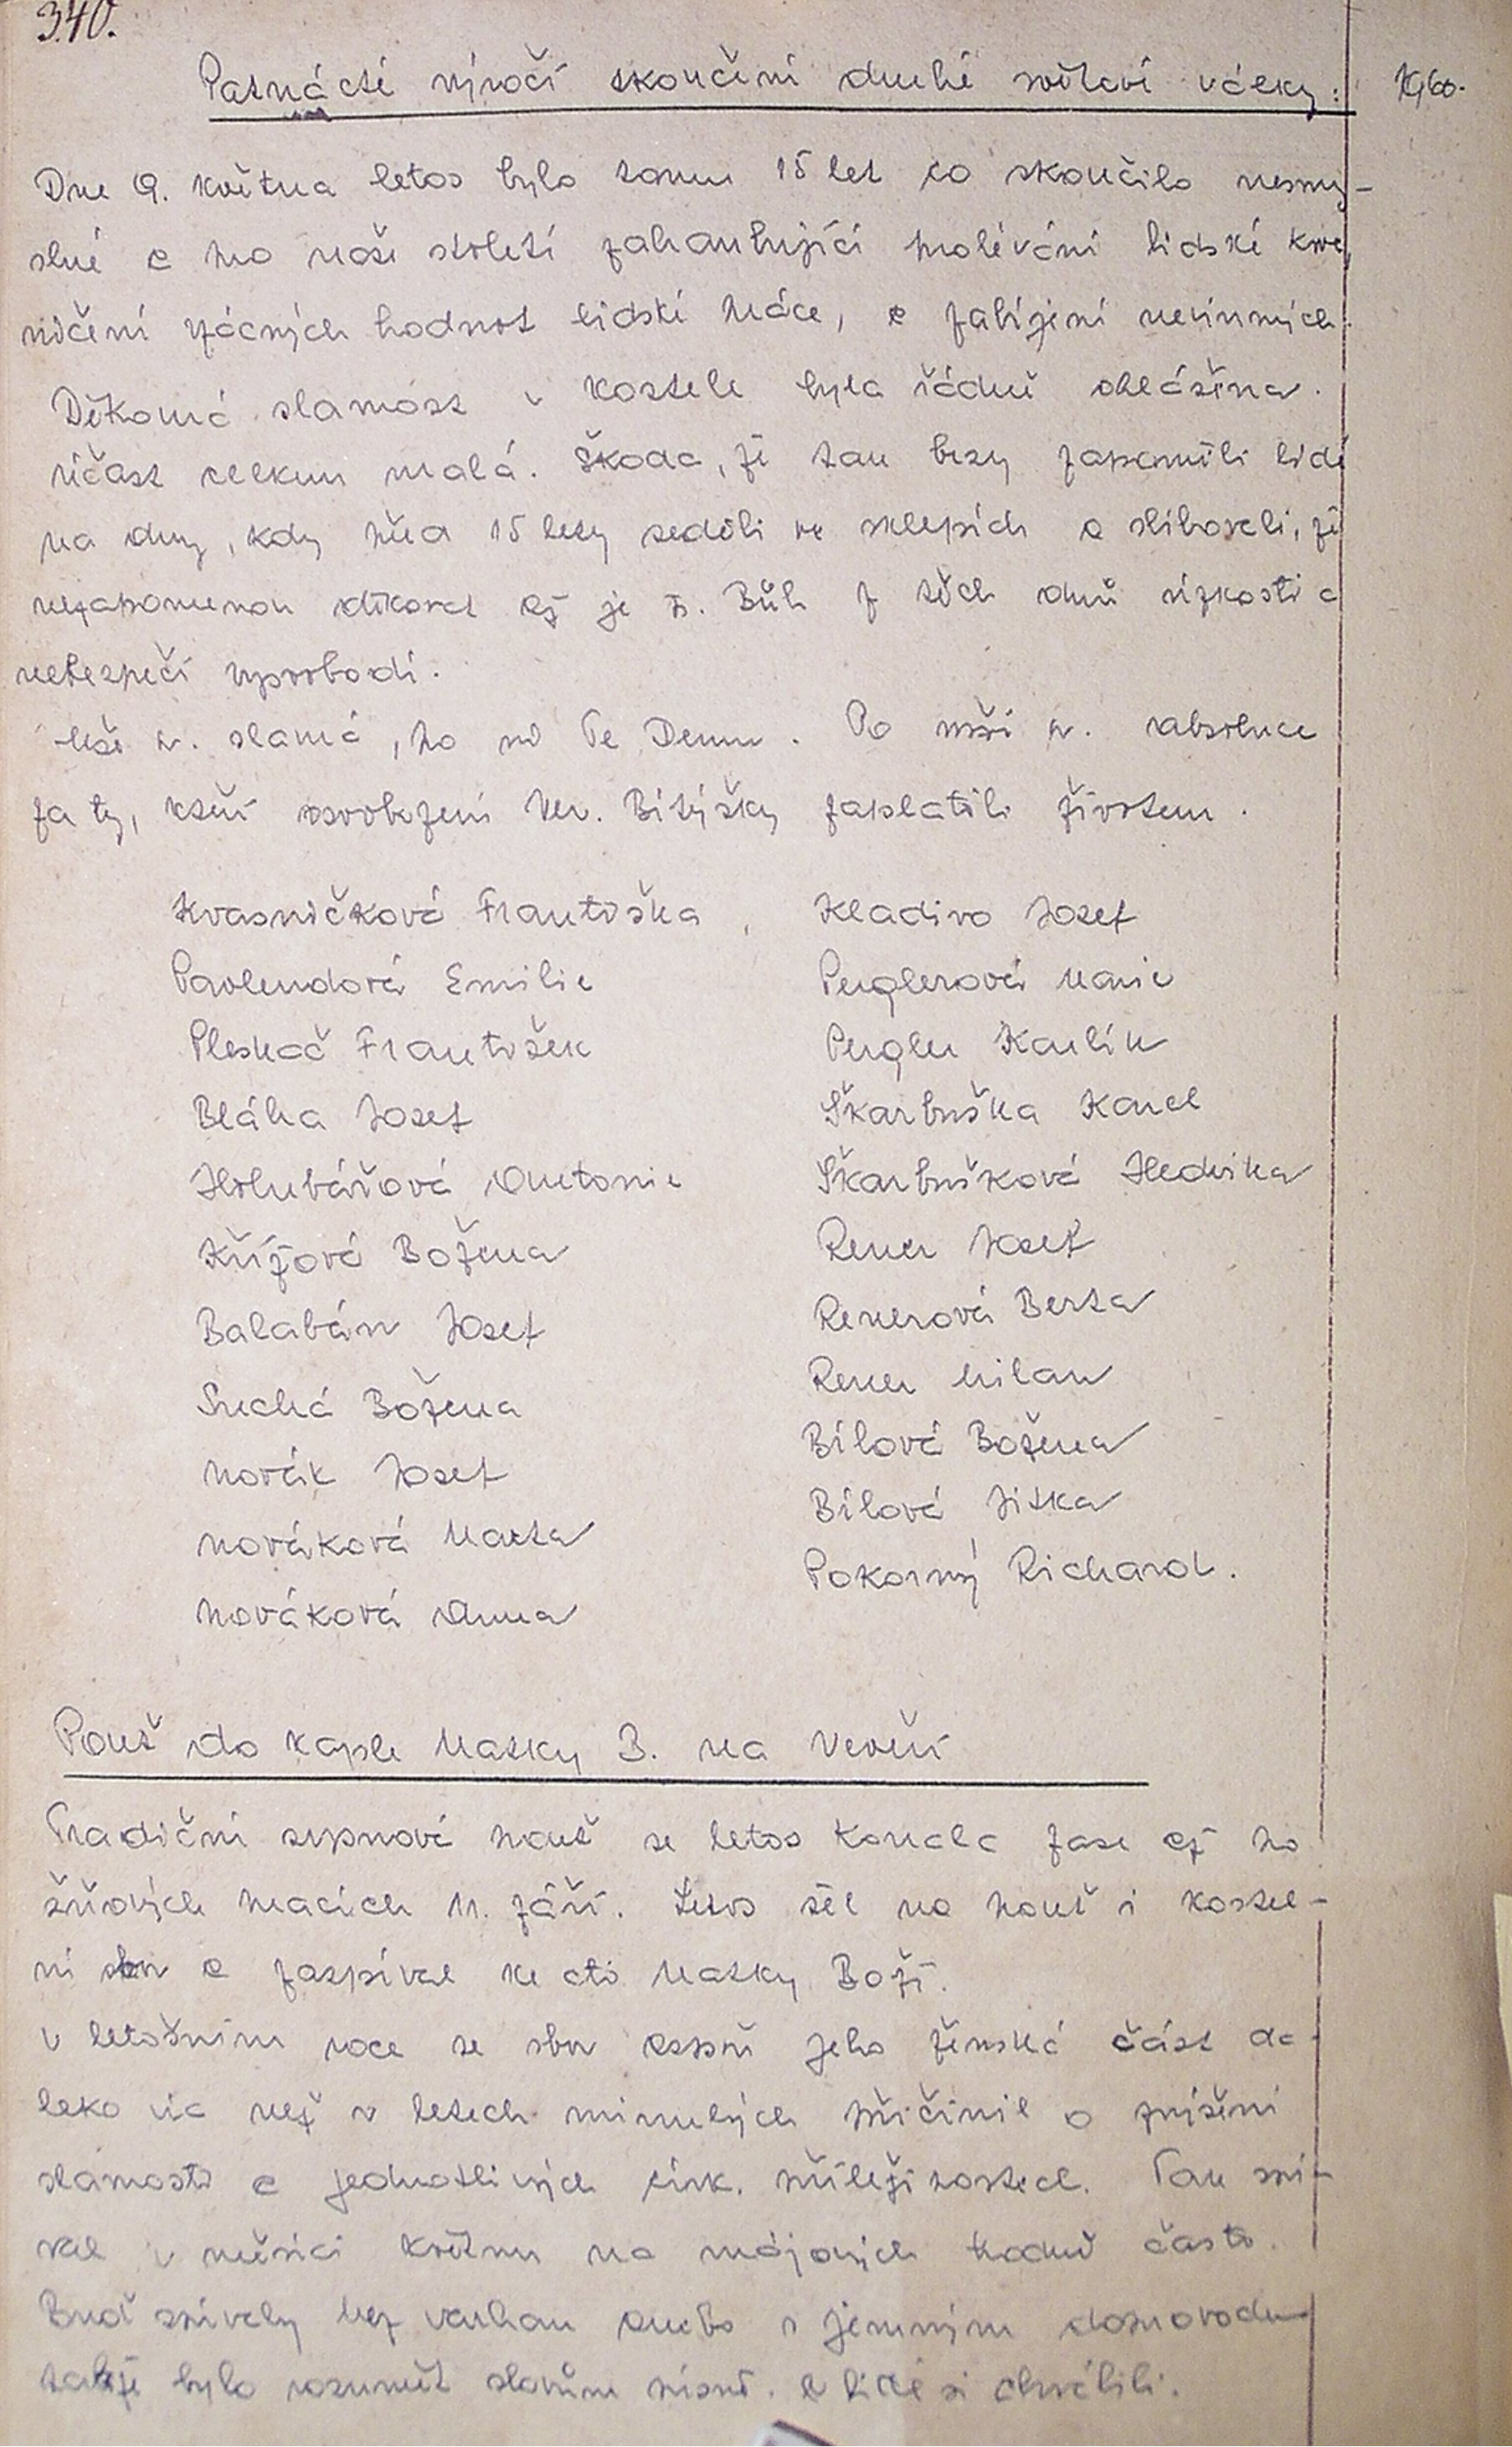 340.
Patnácté výročí skončení druhé světové války: 1960.
Dne 9. května letos bylo tomu 15 let co skončilo nesmy-
slné a pro naše století zahanbující prolévání lidské krve,
ničení vzácných hodnot lidské práce, a zabíjení nevinných.
Děkovná slavnost v kostele byla řádně ohlášena.
účast celkem malá. Škoda, že tak brzy zapomněli lidé
na dny, kdy před 15 lety seděli ve sklepích a slibovali, že
nezapomenou děkovat až je P. Bůh z těch dnů úzkosti a
nebezpečí vysvobodí.
Mše sv. slavná, po ní Te Deum. Po mši sv. absoluce
za ty, kteří osvobození Vev. Bitýšky zaplatili životem.
Kvasničková Františka, Kladivo Josef
Pavlendová Emilie Perglerová Marie
Pleskač František Pergler Karlík
Bláha Josef Škarbuška Karel
Holubářová Antonie Škarbušková Hedvika
Křížová Božena Rener Josef
Balabán Josef Renerová Berta
Suchá Božena Rener Milan
Novák Josef Bílová Božena
Nováková Marta Bílová Jitka
Nováková Anna Pokorný Richard.
Pouť do kaple Matky B. na Veveří
Tradiční srpnová pouť se letos konala zase až po
žňových pracích 11. září. Letos šel na pouť i kostel-
ní sbor a zazpíval ke cti Matky Boží.
V letošním roce se sbor aspoň jeho ženská část da-
leko víc než v letech minulých přičinil o zvýšení
slavnosti a jednotlivých círk. příležitostech. Tak zpí-
val v měsíci květnu na májových hodně často.
Buď zpívaly bez varhan anebo s jemným doprovodem
takže bylo rozumět slovům písně. a lidé si chválili.